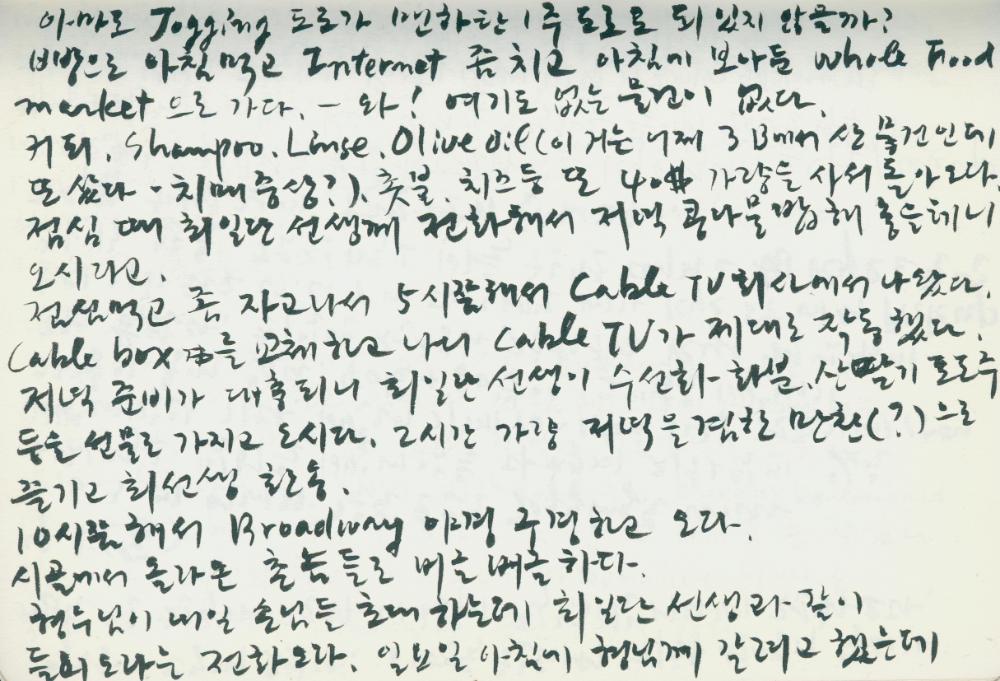 아마도 Jogging 도로가 1번하탄 1주 도로로 되 있지 않을까?
비빔으로 아침먹고 Internet 좀 치고 아침에 보아둔 Whole Food
market 으로 가다. - 와! 여기도 없는 물건이 없다.
커피, Shampoo, Linse, Olive oil (이거는 어제 3B에서 산 물건인데
또 샀다 - 치매증상?), 촛불, 치즈등 또 40$ 가량을 사서 돌아오다.
점심 때 최일단 선생께 전화해서 저녁 콩나물밥 해 놓을테니
오시라고.
점심먹고 좀 자고나서 5시쯤해서 Cable TV 회사에서 나왔다.
Cable box 를 교체하고 나니 Cable TV가 제대로 작동했다.
저녁 준비가 대충되니 최일단 선생이 수선화-화분, 산딸기 포도주
등을 선물로 가지고 오시다. 2시간 가량 저녁을 겸한 만찬(?)으로
즐기고 최선생 환송.
10시쯤해서 Broadway 야경 구경하고 오다.
시골에서 올라온 촌놈들로 버글 버글하다.
형수님이 내일 손님들 초대 하는데 최일단 선생과 같이
들러 오라는 전화오다. 일요일 아침에 형님께 갈려고 했는데